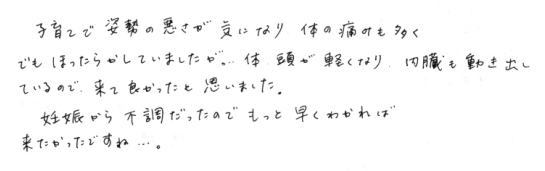 子育てで姿勢の悪さが気になり 体の痛みも多く
でもほったらかしていましたが… 体、頭が軽くなり、内臓も動き出し
ているので、来て良かったと思いました。
妊娠から不調だったので もっと早くわかれば
来たかったですね…。